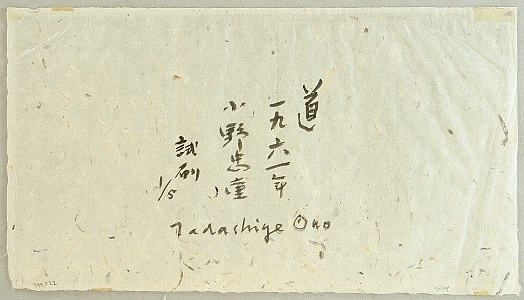 道
一九六一年
小野忠重
試刷
1/5
Tadashige Ono